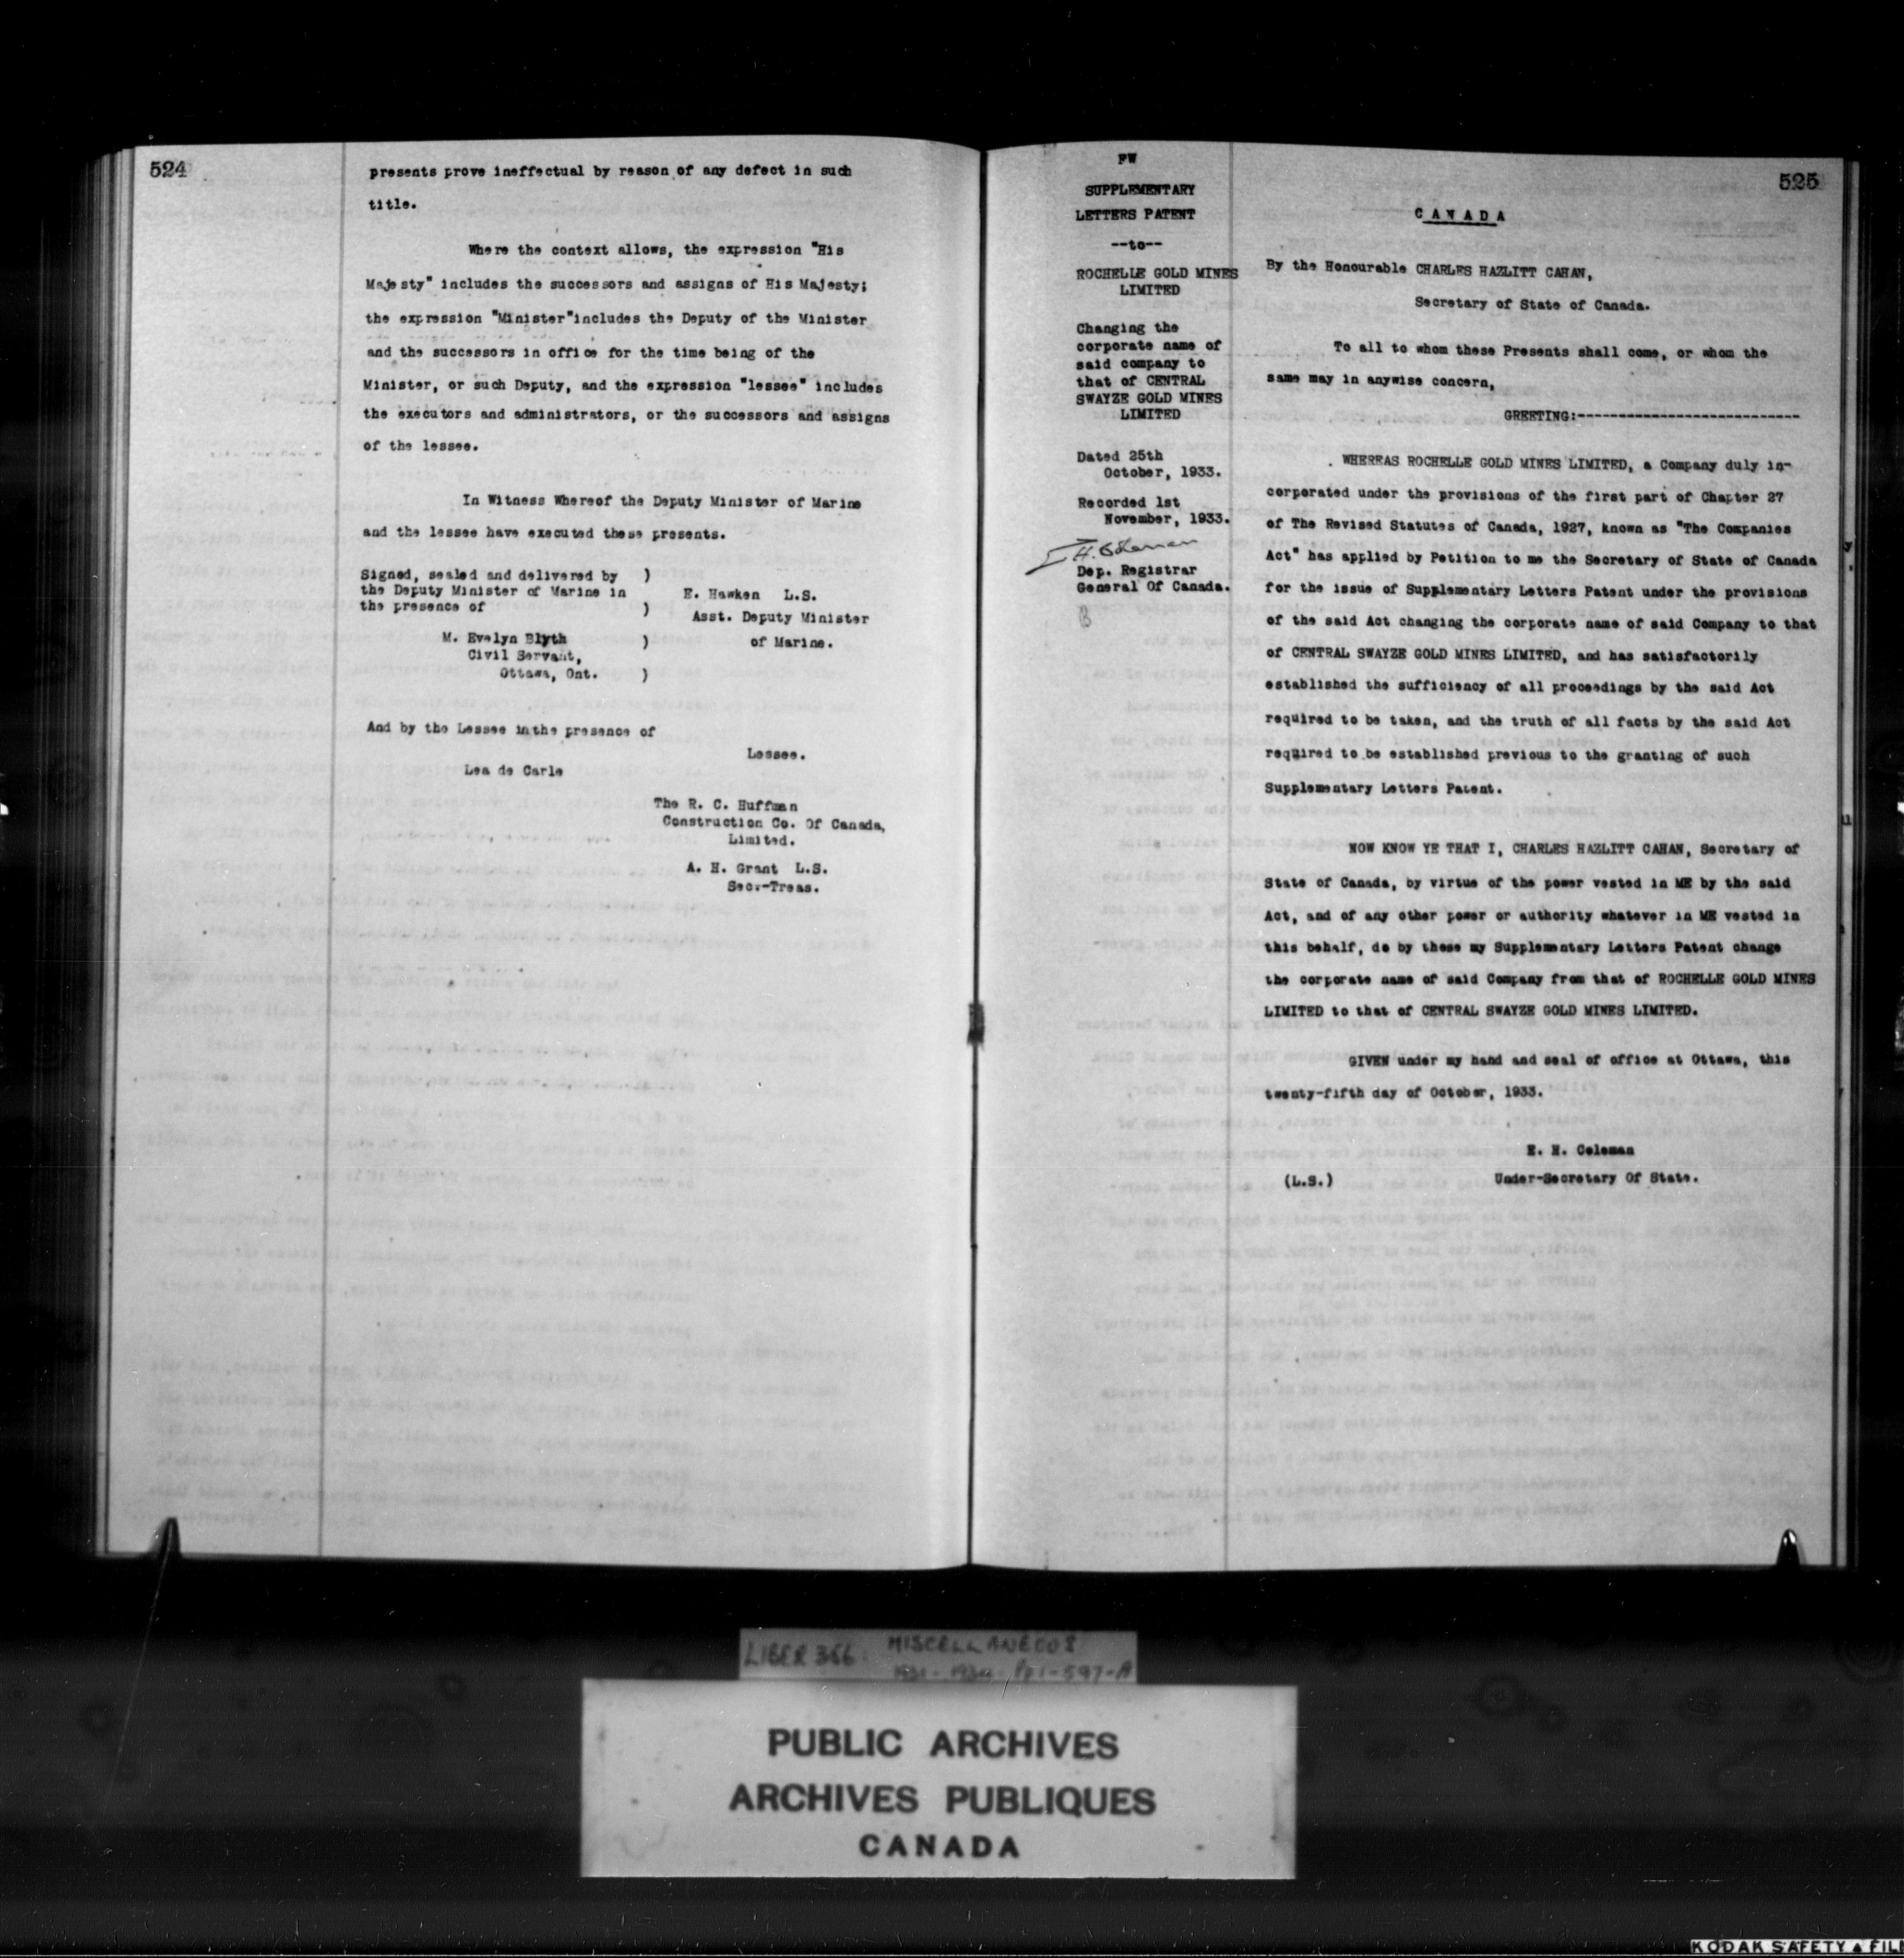 524
presents prove ineffectual by reason of any defect in such
title.
Where the context allows, the expression "His
Majesty" includes the successors and assigns of His Majesty;
the expression "Minister"includes the Deputy of the Minister
and the successors in office for the time being of the
Minister, or such Deputy, and the expression "lessee" includes
the executors and administrators, or the successors and assigns
of the lessee.
In Witness Whereof the Deputy Minister of Marine
and the lessee have executed these presents.
Signed, sealed and delivered by )
the Deputy Minister of Marine in
the presence of )
E. Hawken L.S.
Asst. Deputy Minister
of Marine.
M. Evelyn Blyth )
Civil Servant,
Ottawa, Ont. )
And by the Lessee in the presence of
Lessee.
Lea de Carle
The R. C. Huffman
Construction Co. Of Canada,
Limited.
A. H. Grant L.S.
Sec.-Treas.
FW
SUPPLEMENTARY
LETTERS PATENT
--to--
ROCHELLE GOLD MINES
LIMITED
Changing the
corporate name of
said company to
that of CENTRAL
SWAYZE GOLD MINES
LIMITED
Dated 25th
October, 1933.
Recorded 1st
November, 1933.
Dep. Registrar
General Of Canada.
525
CANADA
By the Honourable CHARLES HAZLITT CAHAN,
Secretary of State of Canada.
To all to whom these Presents shall come, or whom the
same may in anywise concern,
GREETING:---------------------------
WHEREAS ROCHELLE GOLD MINES LIMITED, a Company duly in-
corporated under the provisions of the first part of Chapter 27
of The Revised Statutes of Canada, 1927, known as "The Companies
Act" has applied by Petition to me the Secretary of State of Canada
for the issue of Supplementary Letters Patent under the provisions
of the said Act changing the corporate name of said Company to that
of CENTRAL SWAYZE GOLD MINES LIMITED, and has satisfactorily
established the sufficiency of all proceedings by the said Act
required to be taken, and the truth of all facts by the said Act
required to be established previous to the granting of such
Supplementary Letters Patent.
NOW KNOW YE THAT I, CHARLES HAZLITT CAHAN, Secretary of
State of Canada, by virtue of the power vested in ME by the said
Act, and of any other power or authority whatever in ME vested in
this behalf, do by these my Supplementary Letters Patent change
the corporate name of said Company from that of ROCHELLE GOLD MINES
LIMITED to that of CENTRAL SWAYZE GOLD MINES LIMITED.
GIVEN under my hand and seal of office at Ottawa, this
twenty-fifth day of October, 1933.
E. H. Coleman
(L.S.) Under-Secretary Of State.
LIBER 366 MISCELLANEOUS
PUBLIC ARCHIVES
ARCHIVES PUBLIQUES
CANADA
KODAK SAFETY FIL